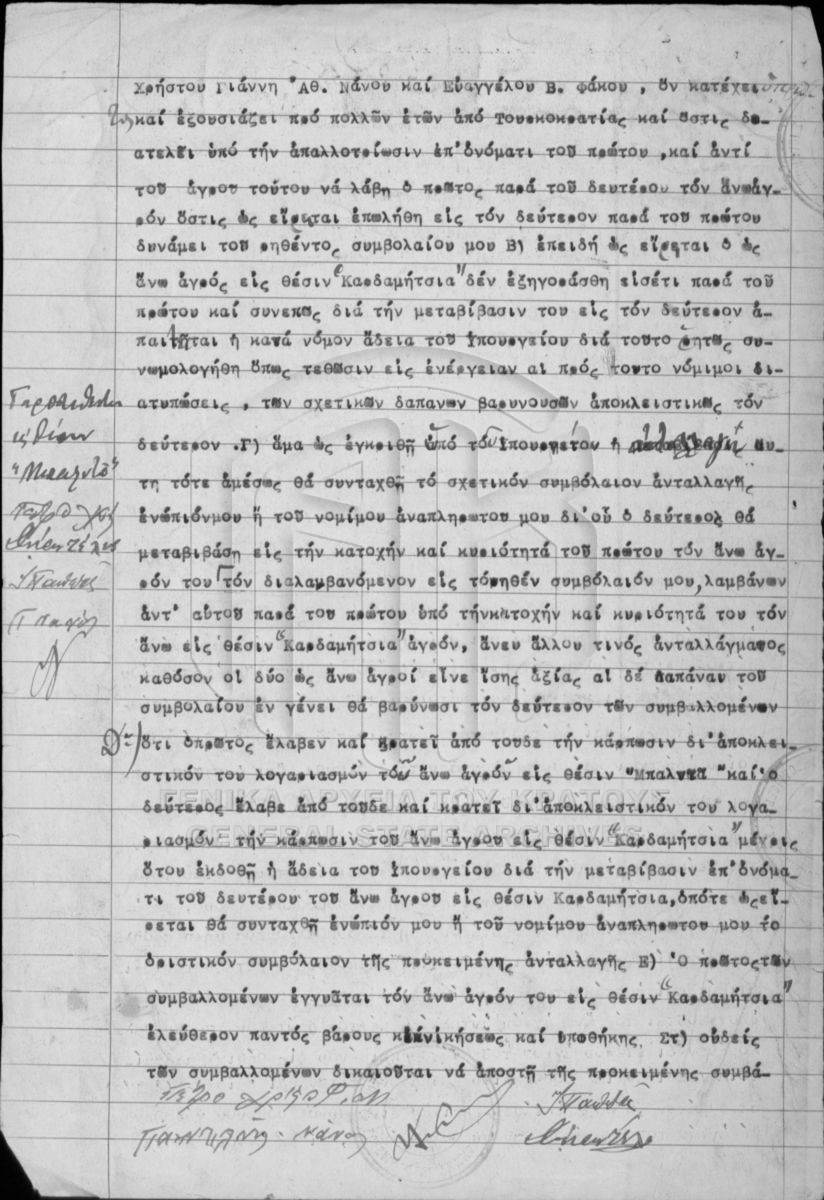 Χρήστου Γιάννη Ἀθ. Νάνου καί Εὐαγγέλου Β. Φάκου , ὅν κατέχει
καί ἐξουσιάζει πρό πολλῶν ἐτῶν ἀπό Τουρκοκρατίας καί ὅστις δι-
ατελεῖ ὑπό τήν ἀπαλλοτρίωσιν ἐπ'ὀνόματι τοῦ πρώτου ,καί ἀντί
τοῦ ἀγροῦ τούτου νά λάβῃ ὁ πρῶτος παρά τοῦ δευτέρου τόν ἄνωἀγ-
ρόν ὅστις ὡς εἴρηται ἐπωλήθη εἰς τόν δεύτερον παρά τοῦ πρώτου
δυνάμει τοῦ ρηθέντος συμβολαίου μου Β) ἐπειδή ὡς εἴρηται ὁ ὡς
ἄνω ἀγρός εἰς θέσιν "Καρδαμήτσια" δέν ἐξηγοράσθη εἰσέτι παρά τοῦ
πρώτου καί συνεπῶς διά τήν μεταβίβασιν του εἰς τόν δεύτερον ἀ-
παιτῆται ἡ κατά νόμον ἄδεια τοῦ Ὑπουργείου διά τοῦτο ρητῶς συ-
νωμολογήθη ὅπως τεθῶσιν εἰς ἐνέργειαν αἱ πρός τοῦτο νόμιμοι δι-
ατυπώσεις , τῶν σχετικῶν δαπανῶν βαρυνουσῶν ἀποκλειστικῶς τόν
δεύτερον .Γ) ἅμα ὡς ἐγκριθῇ ἀπό τοῦ Ὑπουργείον ἡ ἀνταλλαγή αὐ-
τη τότε ἀμέσως θά συνταχθῇ τό σχετικόν συμβόλαιον ἀνταλλαγῆς
ἐνώπιόνμου ἤ τοῦ νομίμου ἀναπληρωτοῦ μου δι'οὗ ὁ δεύτερος θά
μεταβιβάσῃ εἰς τήν κατοχήν καί κυριότητά τοῦ πρώτου τόν ἄνω ἀγ-
ρόν του τόν διαλαμβανόμενον εἰς τόρηθέν συμβόλαιόν μου,λαμβάνων
ἀντ' αὐτοῦ παρά τοῦ πρώτου ὑπό τήνκατοχήν καί κυριότητά του τόν
ἄνω εἰς θέσιν "Καρδαμήτσια" ἀγρόν, ἄνευ ἄλλου τινός ἀνταλλάγματος
καθόσον οἱ δύο ὡς ἄνω ἀγροί εἶνε ἴσης ἀξίας αἱ δέ δαπάναι τοῦ
συμβολαίου ἐν γένει θά βαρύνωσι τόν δεύτερον τῶν συμβαλλομένων
Δ) ὅτι ὁπρῶτος ἔλαβεν καί κρατεῖ ἀπό τοῦδε τήν κάρπωσιν δι'ἀποκλει-
στικόν του λογαριασμόν τοῦ ἄνω ἀγροῦ εἰς θέσιν "Μπαλντά "καί'ὁ
δεύτερος ἔλαβε ἀπό τοῦδε καί κρατεῖ δι'ἀποκλειστικόν του λογα-
ΓΕΝΙΚΑ ΑΡΧΕΙΑ ΤΟΥ ΚΡΑΤΟΥΣ
ριασμόν τήν κάρπωσιν τοῦ ἄνω ἀγροῦ εἰς θέσιν "Καρδαμήτσια" μέχρις
GENERAL STATE ARCHIVES
ὅτου ἐκδοθῇ ἡ ἄδεια τοῦ Ὑπουργείου διά τήν μεταβίβασιν ἐπ'ὀνόμα-
τι τοῦ δευτέρου τοῦ ἄνω ἀγροῦ εἰς θέσιν Καρδαμήτσια,ὁπότε ὡςεἴ-
ρεται θά συνταχθῇ ἐνώπιόν μου ἤ τοῦ νομίμου ἀναπληρωτοῦ μου το
ὁριστικόν συμβόλαιον τῆς προκειμένης ἀνταλλαγῆς Ε) Ὁ πρῶτοςτῶν
συμβαλλομένων ἐγγυᾶται τόν ἄνω ἀγρόν του εἰς θέσιν "Καρδαμήτσια"
ἐλεύθερον παντός βάρους κἐκνικήσεως καί ὑποθήκης Στ) οὐδείς
τῶν συμβαλλομένων δικαιοῦται νά ἀποστῇ τῆς προκειμένης συμβά-